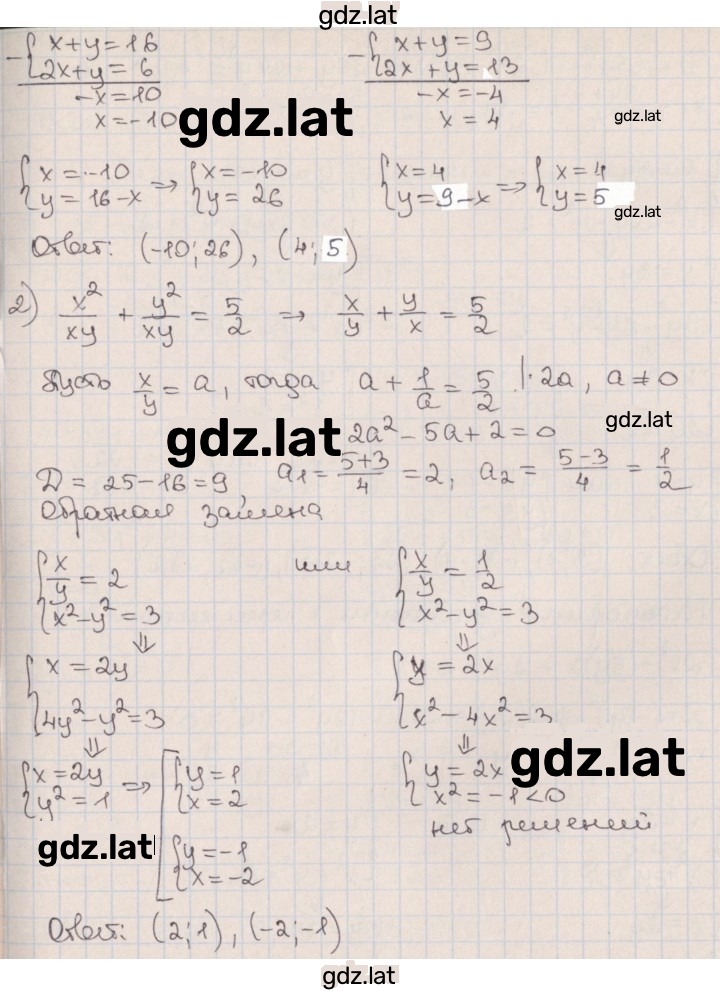 gdz.lat
x+y=16
2x+y=6
-x=10
x=-10
x+y=9
2x+y=13
-x=-4
x=4
gdz.lat
gdz.lat
{x=-10 {x=-10
y=16-x ⇒ y=26
{x=4 {x=4
y=9-x ⇒ y=5
gdz.lat
Ответ: (-10; 26), (4; 5)
2) x²/xy + y²/xy = 5/2 ⇒ x/y + y/x = 5/2
Пусть x/y = a, тогда a + 1/a = 5/2 |·2a, a≠0
gdz.lat
2a² - 5a + 2 = 0
gdz.lat
D = 25-16=9, a₁ = (5+3)/4 = 2, a₂ = (5-3)/4 = 1/2
Обратная замена
{x/y = 2 или {x/y = 1/2
x²-y²=3 x²-y²=3
⇓ ⇓
{x=2y {y=2x
4y²-y²=3 x²-4x²=3
⇓ ⇓
{x=2y ⇒ [{y=1 {y=2x
y²=1 x=2 x²=-1<0
gdz.lat
нет решений
gdz.lat
{y=-1
x=-2
Ответ: (2; 1), (-2; -1)
gdz.lat